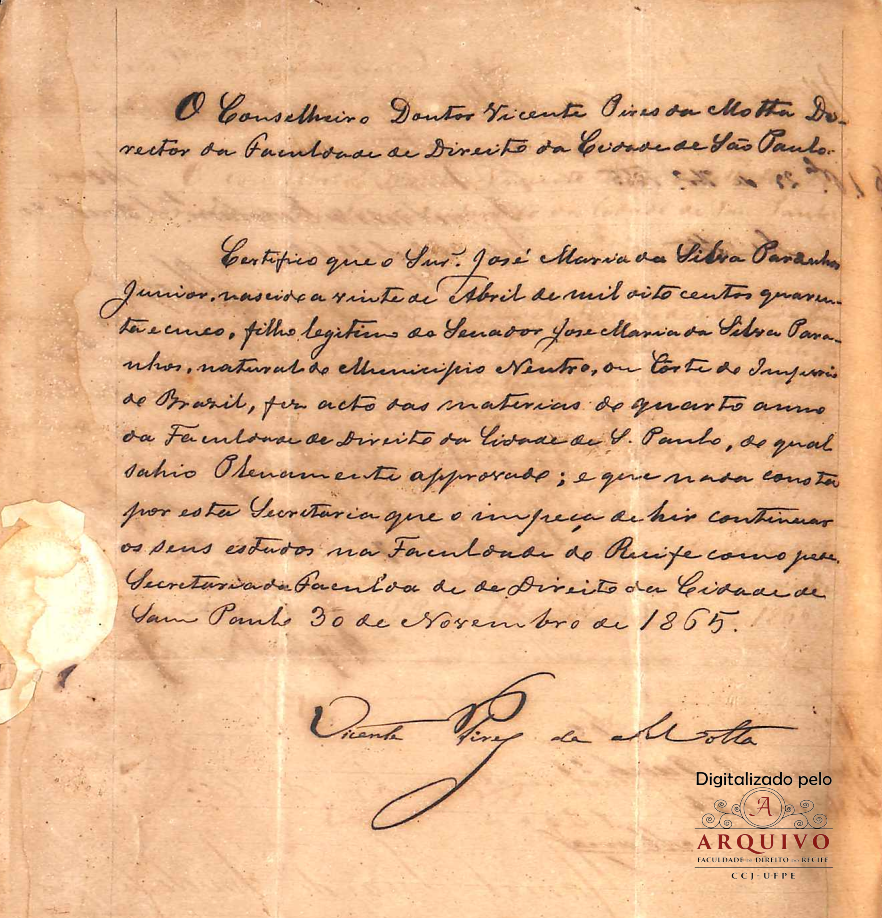 O Conselheiro Doutor Vicente Pires da Motta Di-
rector da Faculdade de Direito da Cidade de São Paulo.
Certifico que o Snr. José Maria da Silva Paranhos
Junior, nascido a vinte de Abril de mil oito centos quaren-
ta e cinco, filho legitimo do Senador José Maria da Silva Para-
nhos, natural do Municipio Neutro, ou Corte do Imperio
do Brazil, fez acto das materias do quarto anno
da Faculdade de Direito da Cidade de S. Paulo, do qual
sahio Plenamente approvado; e que nada consta
por esta Secretaria que o impeça de hir continuar
os seus estudos na Faculdade do Recife como pede.
Secretaria da Faculdade de Direito da Cidade de
Sam Paulo 30 de Novembro de 1865.
Vicente Pires da Motta
Digitalizado pelo
A
ARQUIVO
FACULDADE DE DIREITO DO RECIFE
CCJ-UFPE